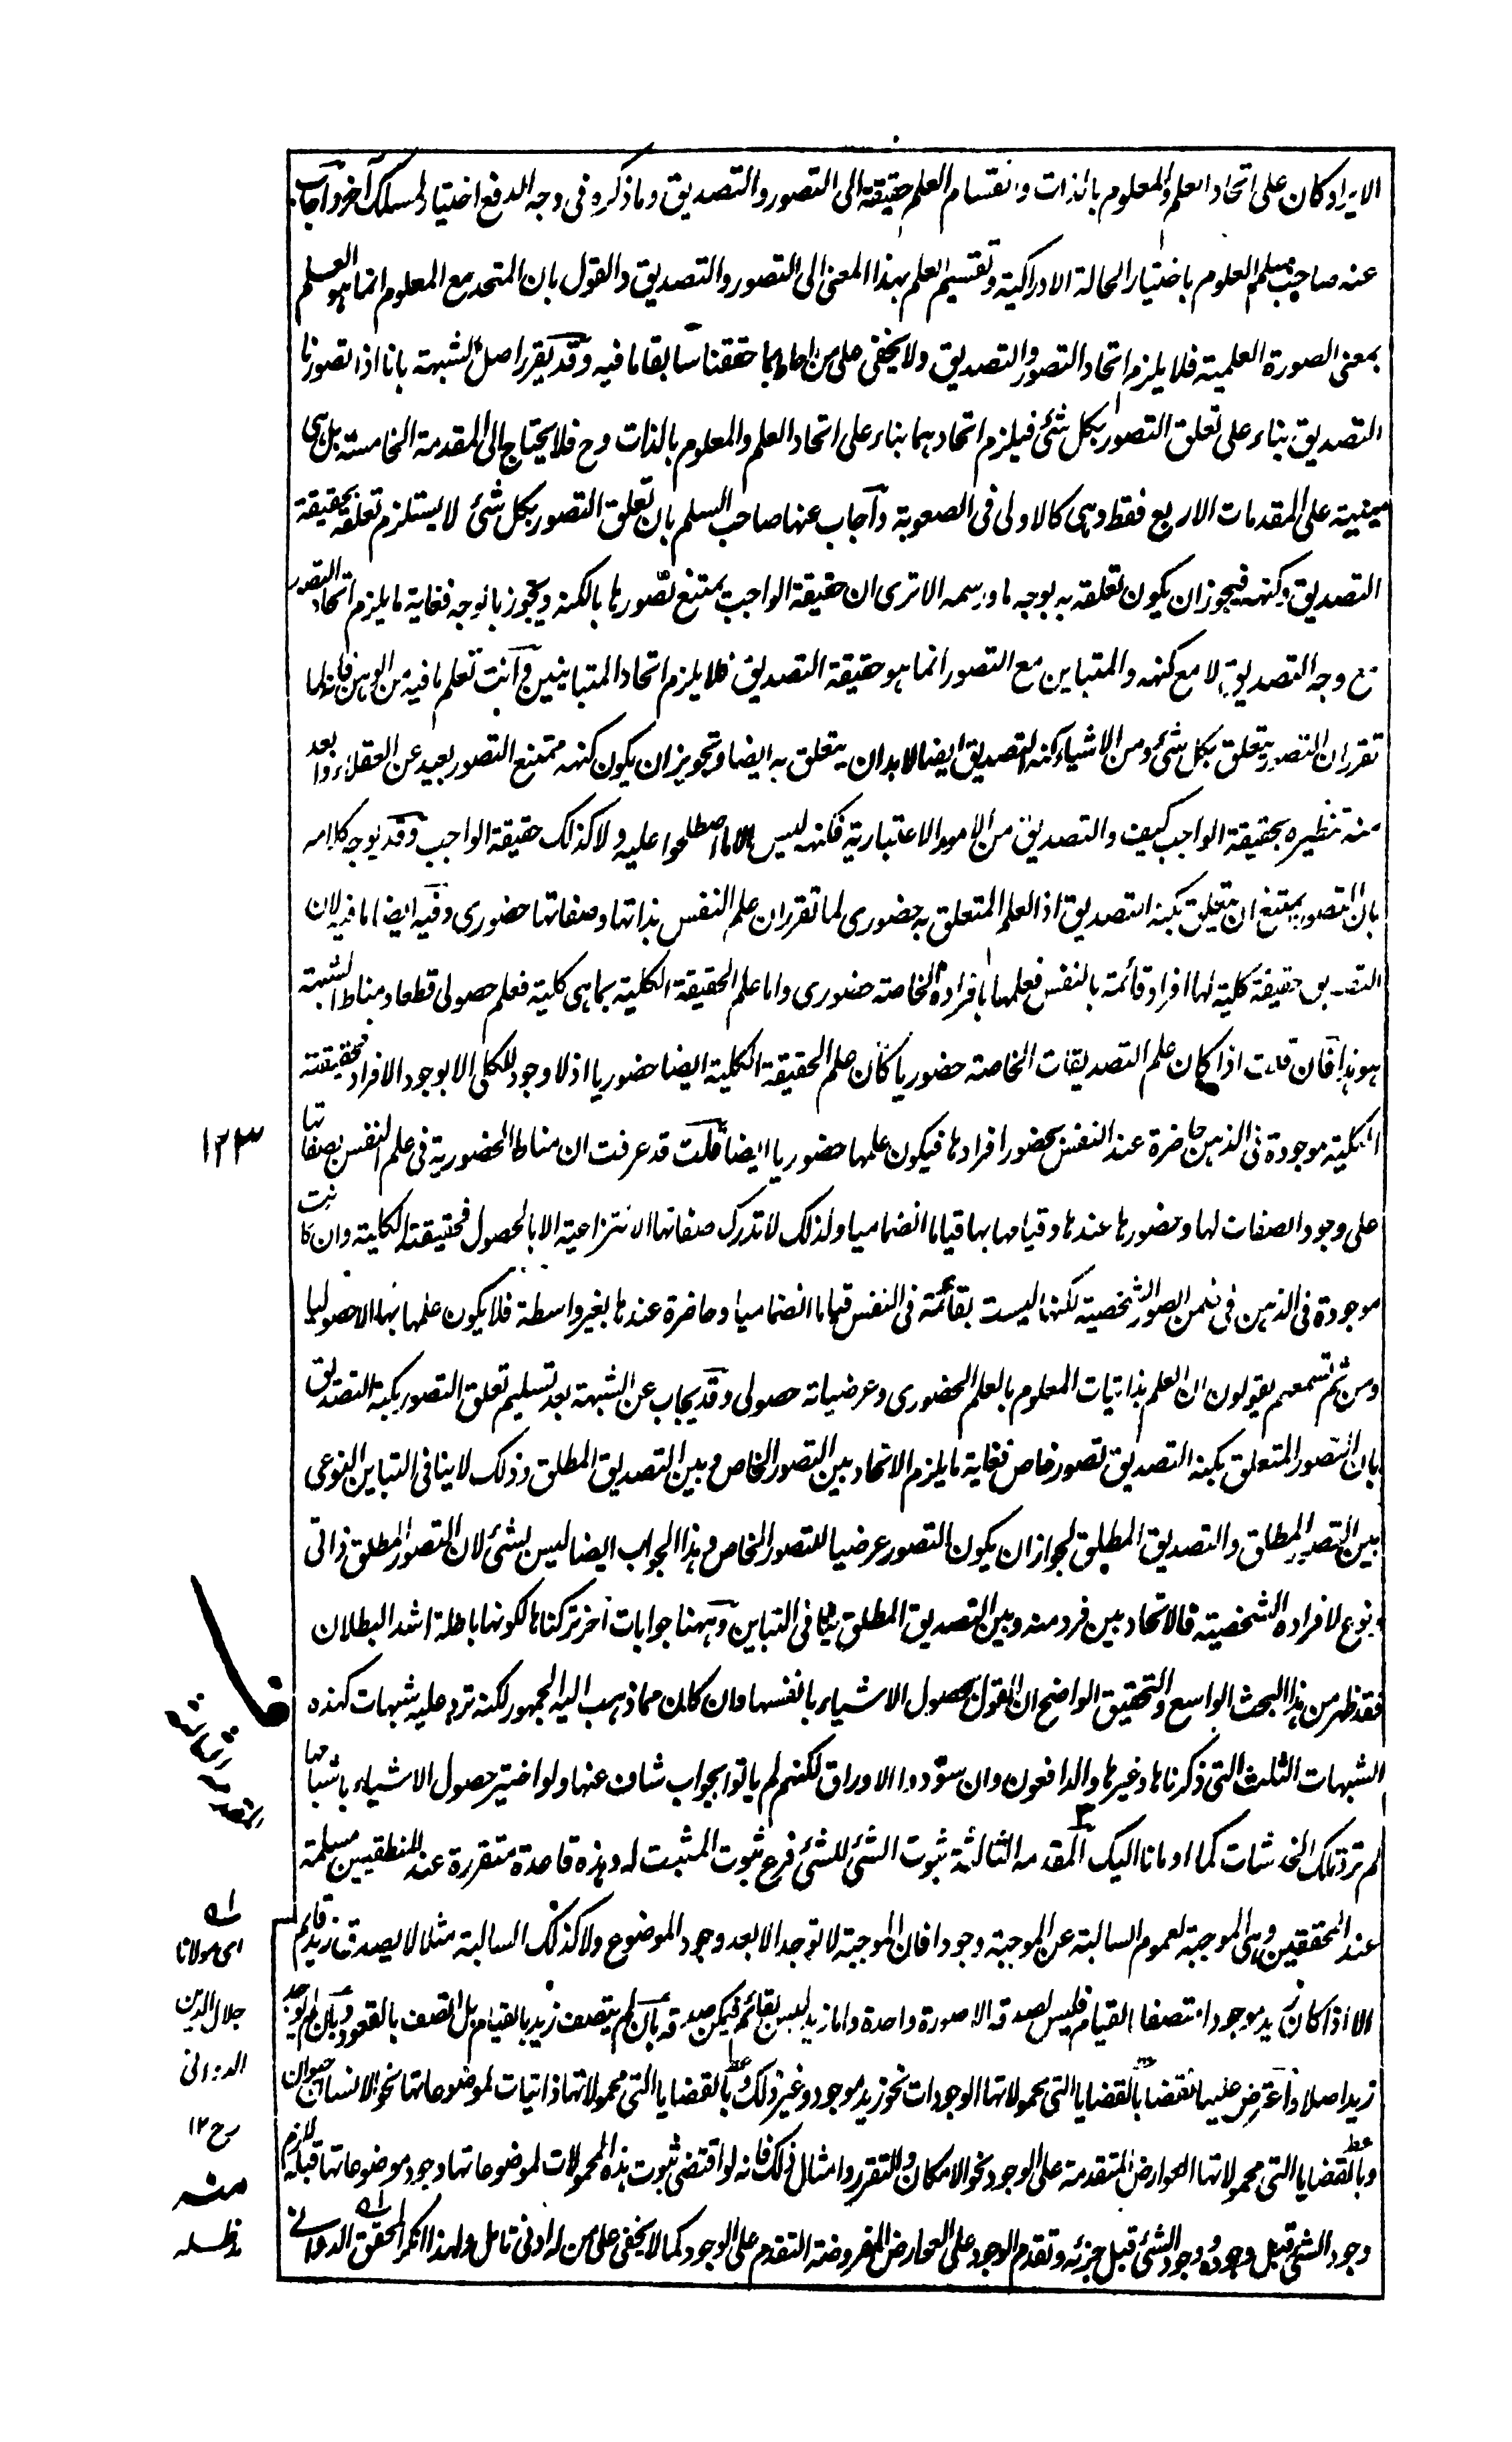 الايراد كان على اتحاد العلم والمعلوم بالذات وانقسام العلم حقيقة الى التصور والتصديق وما ذكره فى وجه الدفع اختيار لمسلك آخر وآجاب
عنه صاحب سلم العلوم باختيار الحالة الادراكية وتقسيم العلم بهذا المعنى الى التصور والتصديق والقول بان المتحد مع المعلوم انما هو العلم
بمعنى الصورة العلمية فلا يلزم اتحاد التصور والتصديق ولا يخفى على من احاط بما حققنا سابقا ما فيه وقد يقرر اصل الشبهة بانا اذا تصورنا
التصديق بناء على تعلق التصور بكل شئ فيلزم اتحادهما بناء على اتحاد العلم والمعلوم بالذات وح فلا يحتاج الى المقدمة الخامسة بل هى
مبنية على المقدمات الاربع فقط وهى كالاولى فى الصعوبة وآجاب عنها صاحب السلم بان تعلق التصور بكل شئ لا يستلزم تعلقه بحقيقة
التصديق وكنهه فيجوز ان يكون تعلقه به بوجه ما ورسمه الا ترى ان حقيقة الواجب يمتنع تصورها بالكنه ويجوز بالوجه فغاية ما يلزم اتحاد التصور
مع وجه التصديق لا مع كنهه والمتباين مع التصور انما هو حقيقة التصديق فلا يلزم اتحاد المتباينين وآنت تعلم ما فيه من الوهن فانه لما
تقرر ان التصور يتعلق بكل شئ ومن الاشياء كنه التصديق ايضا لابد ان يتعلق به ايضا وتجويز ان يكون كنهه ممتنع التصور بعيد عن العقلاء وابعد
منه تنظيره بحقيقة الواجب كيف والتصديق من الامور الاعتبارية فكنهه ليس الا ما اصطلحوا عليه ولا كذلك حقيقة الواجب وقد يوجه كلامه
بان التصور يمتنع ان يتعلق بكنه التصديق اذ العلم المتعلق به حضورى لما تقرر ان علم النفس بذاتها وصفاتها حضورى وفيه ايضا ما فيه لان
التصديق حقيقة كلية لها افراد قائمة بالنفس فعلمها بافراده الخاصة حضورى واما علم الحقيقة الكلية بما هى كلية فعلم حصولى قطعا ومناط الشبهة
هو هذا فان قلت اذا كان علم التصديقات الخاصة حضوريا كان علم الحقيقة الكلية ايضا حضوريا اذ لا وجود للكلى الا بوجود الافراد فحقيقته
الكلية موجودة فى الذهن حاضرة عند النفس بحضور افرادها فيكون علمها حضوريا ايضا قلت قد عرفت ان مناط الحضورية فى علم النفس بصفاتها
على وجود الصفات لها وحضورها عندها وقيامها بها قياما انضماميا ولذلك لا تدرك صفاتها الانتزاعية الا بالحصول فحقيقته الكلية وان كانت
موجودة فى الذهن فى ضمن الصور الشخصية لكنها ليست بقائمة فى النفس قياما انضماميا وحاضرة عندها بغير واسطة فلا يكون علمها بها الا حصوليا
ومن ثم تسمعهم يقولون ان العلم بذاتيات المعلوم بالعلم الحضورى وعرضياته حصولى وقد يجاب عن الشبهة بعد تسليم تعلق التصور بكنه التصديق
بان التصور المتعلق بكنه التصديق تصور خاص فغاية ما يلزم الاتحاد بين التصور الخاص وبين التصديق المطلق وذلك لا ينافى التباين النوعى
بين التصور المطلق والتصديق المطلق لجواز ان يكون التصور عرضيا للتصور الخاص وهذا الجواب ايضا ليس بشئ لان التصور المطلق ذاتى
ونوع لافراده الشخصية فالاتحاد بين فرد منه وبين التصديق المطلق ينافى التباين وههنا جوابات آخر تركناها لكونها باطلة اشد البطلان
فقد ظهر من هذا البحث الواسع والتحقيق الواضح ان القول بحصول الاشياء بانفسها وان كان مما ذهب اليه الجمهور لكنه ترد عليه شبهات كهذه
الشبهات الثلث التى ذكرناها وغيرها والدافعون وان سوّدوا الاوراق لكنهم لم ياتوا بجواب شاف عنها ولو اختير حصول الاشياء باشباحها
لم ترد تلك الخدشات كما اومانا اليك المقدمة الثالثة ثبوت الشئ للشئ فرع ثبوت المثبت له وهذه قاعدة متقررة عند المنطقيين مسلمة
عند المحققين وهى الموجبة لعموم السالبة عن الموجبة وجودا فان الموجبة لا توجد الا بعد وجود الموضوع ولا كذلك السالبة مثلا لا يصدق زيد قائم
الا اذا كان زيد موجودا متصفا القيام فليس لصدقه الا صورة واحدة واما زيد ليس بقائم فيمكن صدقه بان لم يتصف زيد بالقيام بل اتصف بالقعود وبان لم يوجد
زيد اصلا واعترض عليها نقضا بالقضايا التى محمولاتها الوجودات نحو زيد موجود وغير ذلك وبالقضايا التى محمولاتها ذاتيات لموضوعاتها نحو الانسان حيوان
وبالقضايا التى محمولاتها العوارض المتقدمة على الوجود نحو الامكان والتقرر وامثال ذلك فانه لو اقتضى ثبوت هذه المحمولات لموضوعاتها وجود موضوعاتها قبله لزم
وجود الشئ قبل وجوده ووجود الشئ قبل جزئه وتقدم الوجود على العوارض المفروضة التقدم على الوجود كما لا يخفى على من له ادنى تامل ولهذا انكر المحقق الدوانى
١٢٣
اى مولانا
جلال الدين
الدوانى
رح ١٢
منه
مد ظله